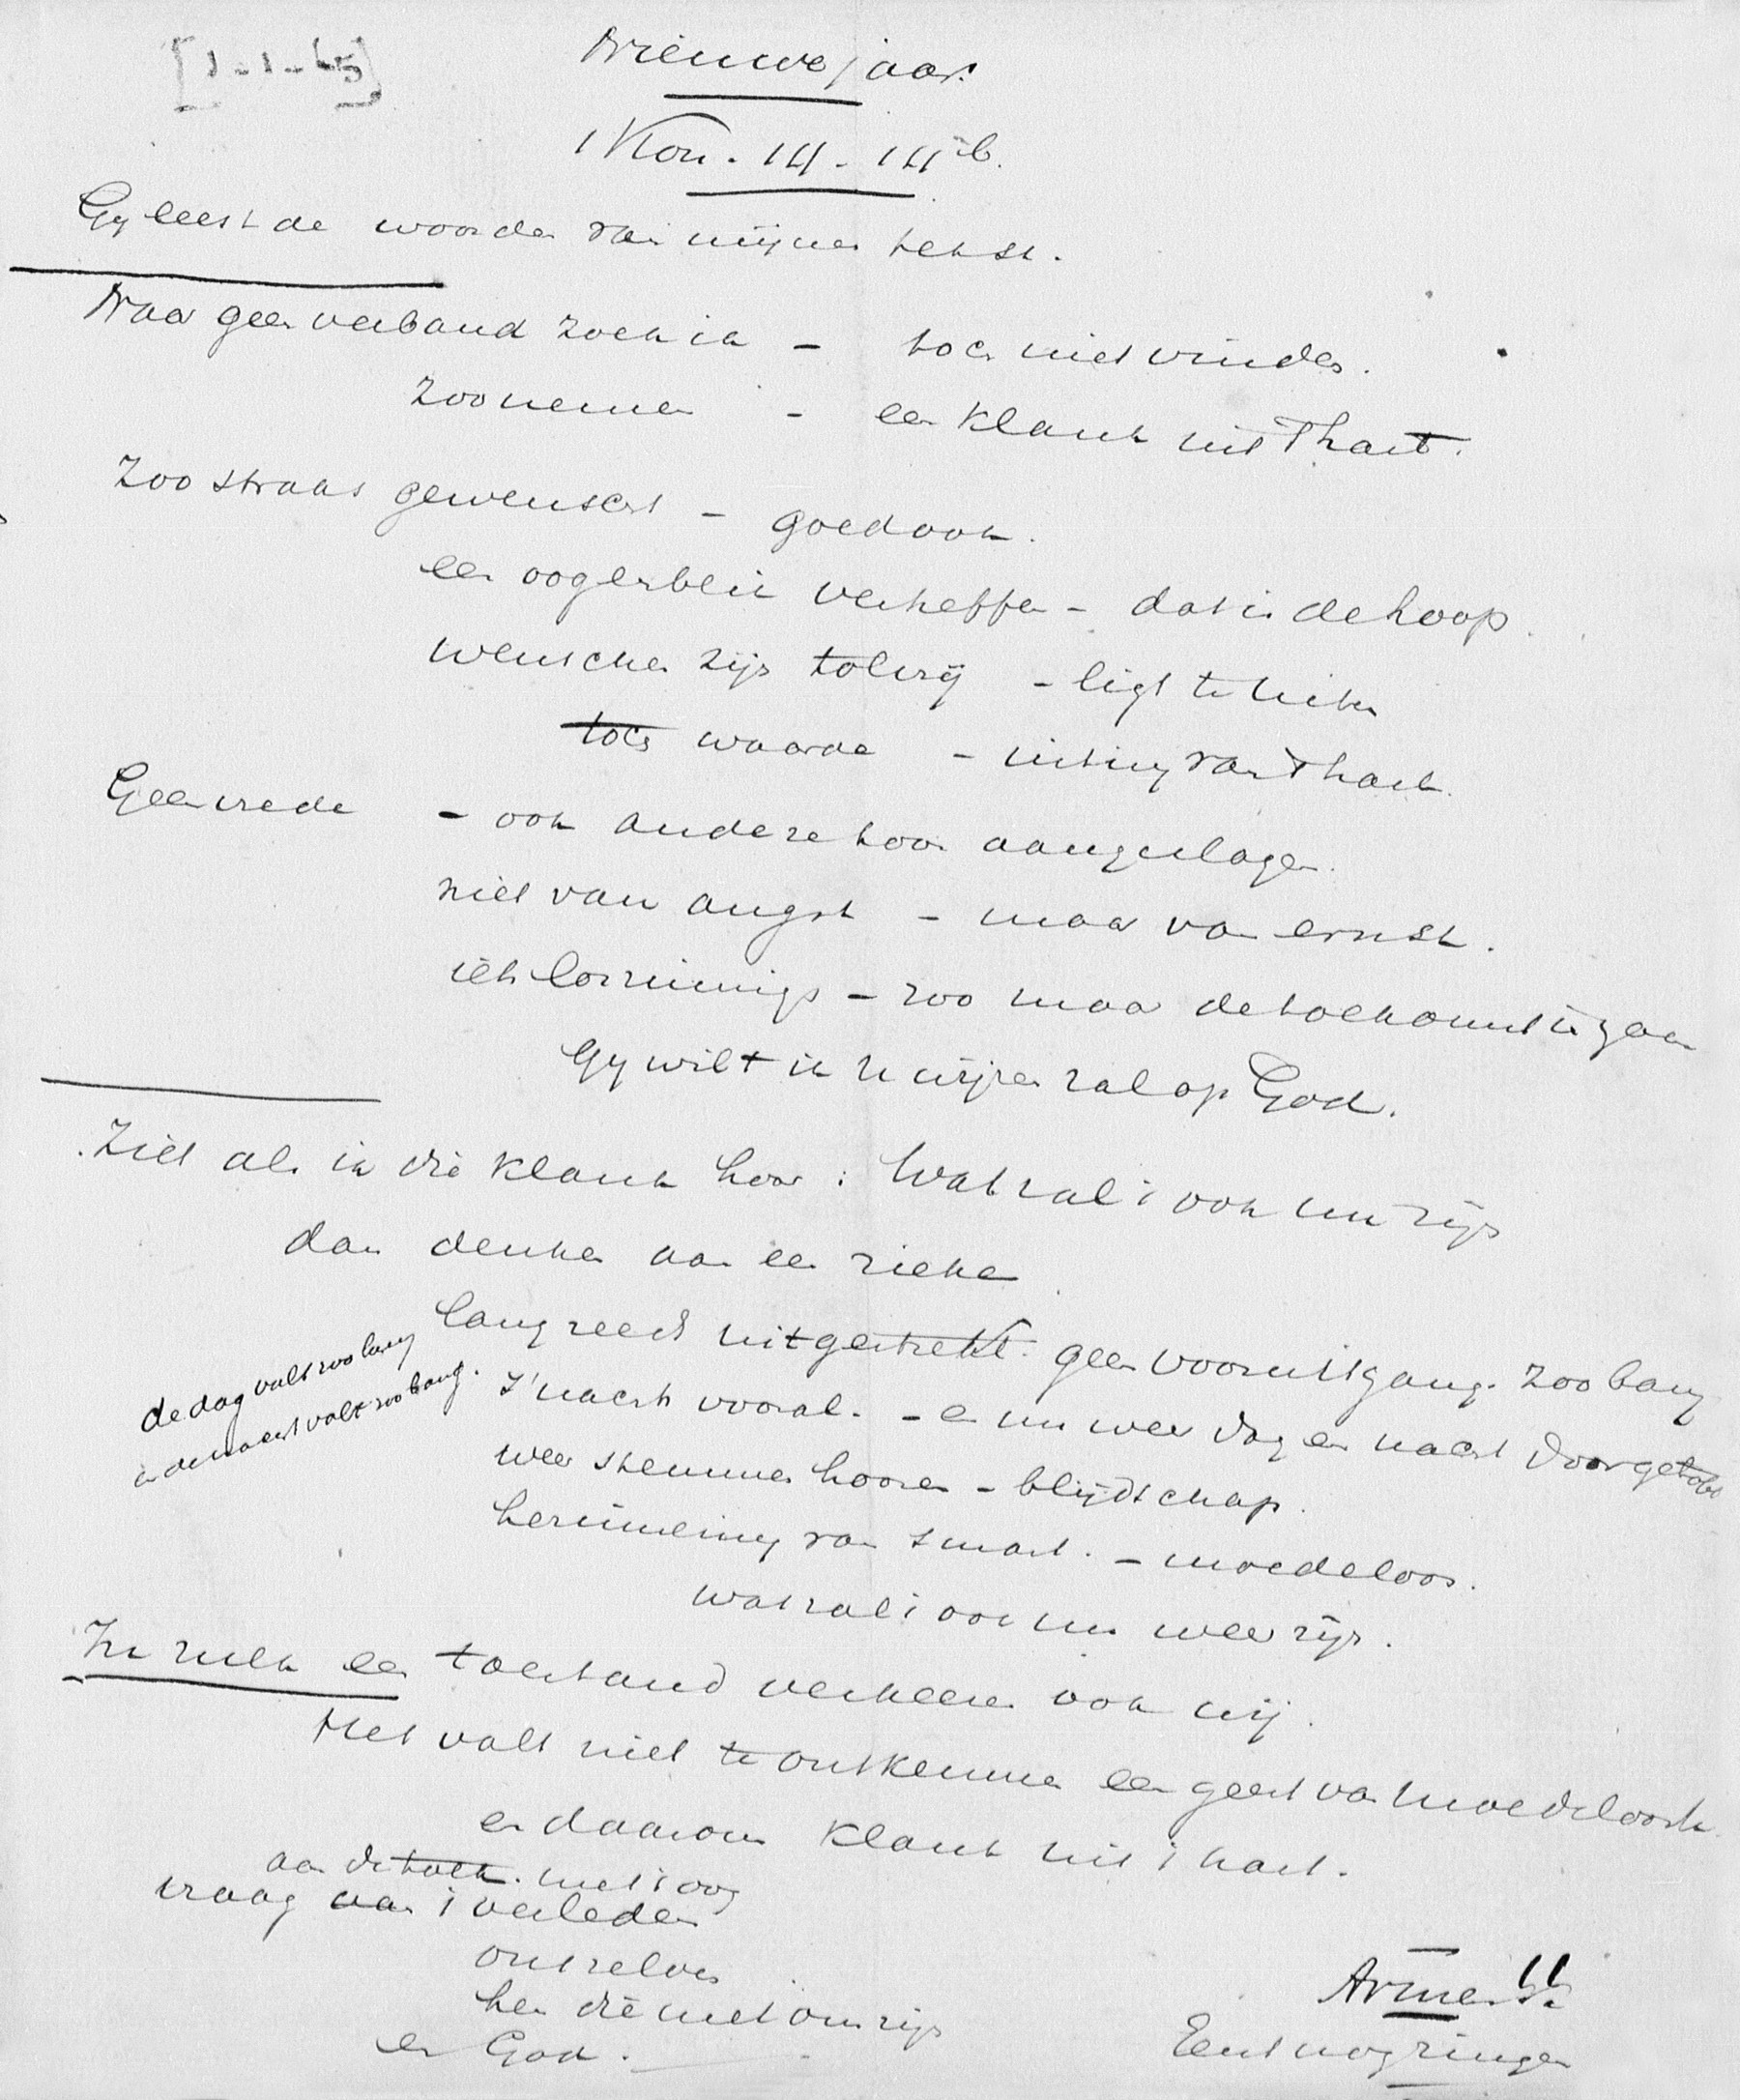 [1-1-45]
Nieuwejaar.
1 Kor. 14 - 14b.
Gy leest de woorden van mijnen tekst.
Naar geen verband zoek ik - toch niet vinden.
Zoo nemen - een klank uit 't hart.
Zoo straks gewenscht - goed ook.
een oogenblik verheffen - dat is de hoop.
wenschen zijn tolvrij - ligt te uiten
toch waarde - uiting van 't hart.
Geen vrede - ook andere toon aangeslagen.
niet van angst - maar van ernst.
niet lonzinnigs - zoo maar de toekomst in gaan
Gy wilt ik u wijzen zal op God.
Ziet als ik die klank hoor: Wat zal 't ook nu zijn
dan denken aan een zieke
lang reeds uitgestrekt. geen vooruitgang. zoo bang
de dag valt zoo lang
en de nacht valt zoo bang.
's nachts vooral. - en nu weer dag en nacht doorgetobt
weer stemmen hooren - blijdschap.
herinnering van smart. - moedeloos.
wat zal 't ook nu weer zijn.
In zulk een toestand verkeeren ook wij.
Het valt niet te ontkennen een geest van moedeloosh.
en daarom klank uit 't hart.
aan de toek. met 't oog
vraag aan 't verleden
ons zelven
hen die met ons zijn
en God.
Armen
Eens nog zingen